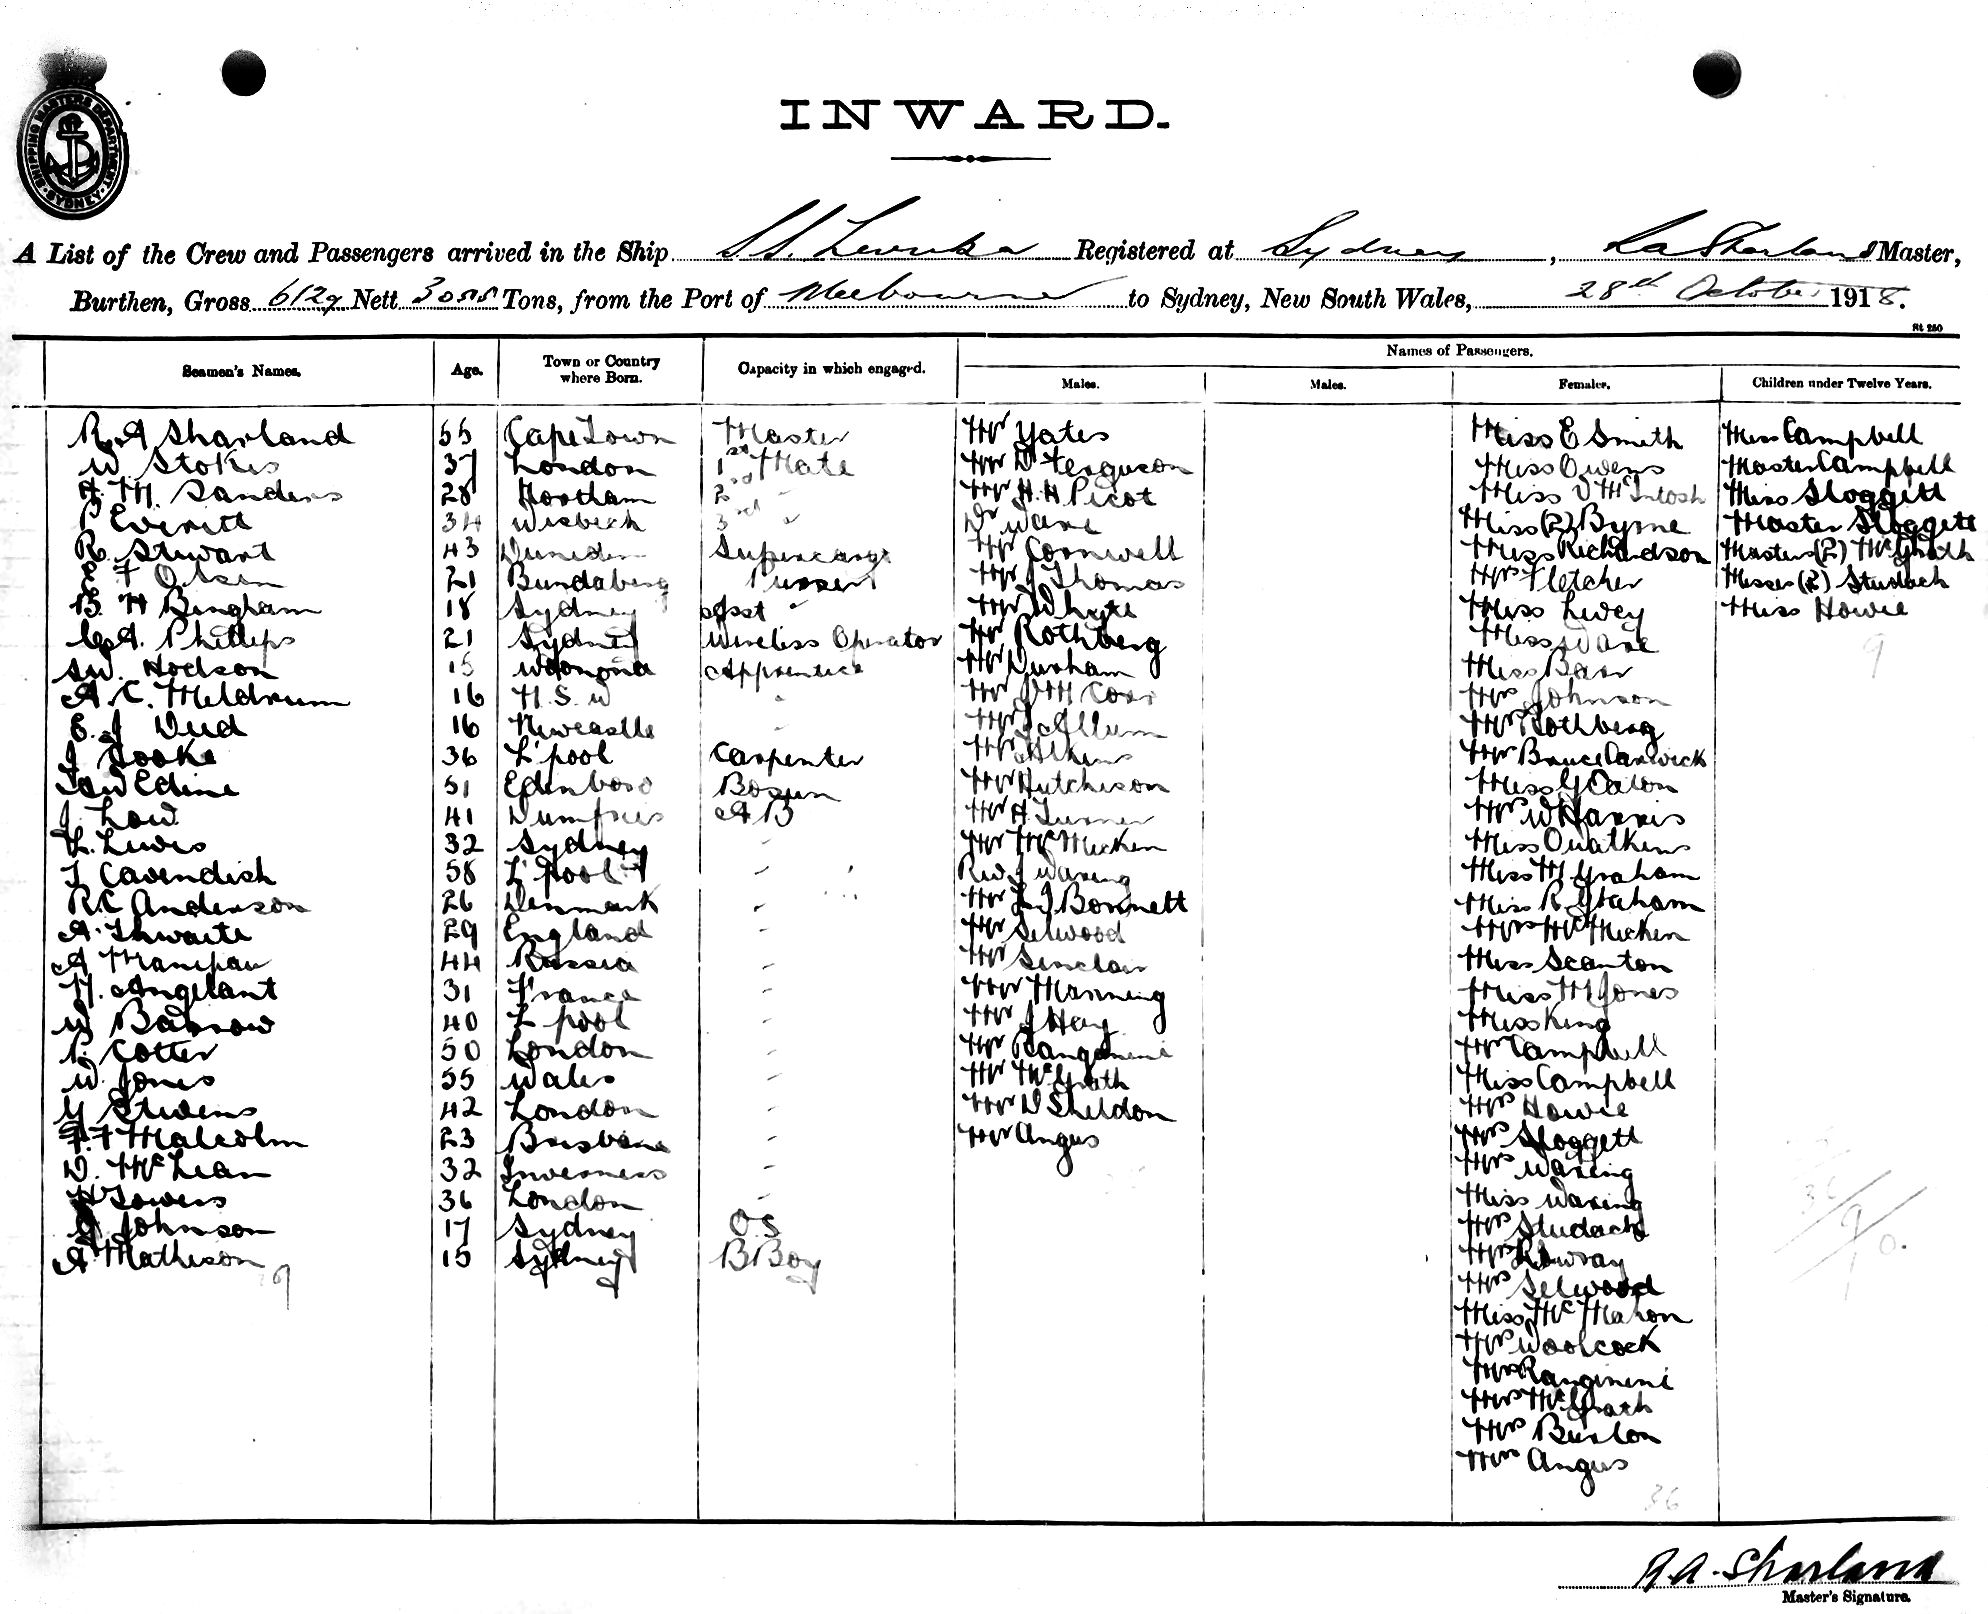 SHIPPING MASTERS DEPARTMENT
SYDNEY
INWARD.
A List of the Crew and Passengers arrived in the Ship S.S. Levuka Registered at Sydney, R A Sharland Master,
Burthen, Gross 6129 Nett 3055 Tons, from the Port of Melbourne to Sydney, New South Wales, 28th October 1918.
St 250
Seamen's Names. Age. Town or Country where Born. Capacity in which engaged. Names of Passengers.
Males. Males. Females. Children under Twelve Years.
R A Sharland 55 Cape Town Master Mr Yates Miss E Smith Miss Campbell
W. Stokes 37 London 1st Mate Mr D Ferguson Miss Owens Master Campbell
A. M. Sanders 28 Hortham 2nd " Mr H H Picot Miss D McIntosh Miss Sloggett
P Everitt 34 Wisbech 3rd " Dr Ware Miss (2) Byrne Master Sloggett
R. Stewart 43 Dunedin Supercargo Mr Cornwell Miss Richardson Masters (2) McGrath
E F Olsen 21 Bundaberg Purser Mr J Thomas Mrs Fletcher Misses (2) Studach
B. H Bingham 18 Sydney Asst " Mr Whyte Miss Livey Miss Howie
C A. Phillips 21 Sydney Wireless Operator Mr Rothberg Miss Ware 9
S W. Hodson 15 Woonona Apprentice Mr Durham Miss Barr
A C. Meldrum 16 N. S. W " Mr J M Corr Mrs Johnson
E. J Dud 16 Newcastle " Mr J Allum Mrs Rothberg
J Sooke 36 L'pool Carpenter Mr Mrs Bruce Carwick
Edine 51 Edinboro Bosun Mr Hutchison Miss G Eaton
J. Low 41 Dumfries AB Mr A Turner Mrs W Harris
L. Lewis 32 Sydney " Mr McMicken Miss Quatkins
J Cavendish 58 L'pool " Rev. J Waring Miss M Graham
R C Anderson 26 Denmark " Mr L J Bonnett Miss R Graham
A. Thwaite 29 England " Mr Selwood Mrs McMicken
A 44 Russia " Mr Sinclair Miss Scanton
N. Angelant 31 France " Mr Manning Miss M Jones
W Barrow 40 L'pool " Mr J Hay Miss King
P. Cotter 50 London " Mr Rangimeni Mrs Campbell
W. Jones 55 Wales " Mr McGrath Miss Campbell
G Stevens 42 London " Mr D Sheldon Mrs Howie
F. F Malcolm 23 Brisbane " Mr Angus Mrs Sloggett
D. McLean 32 Inverness " Mrs Waring
H Towers 36 London " Miss Waring
J Johnson 17 Sydney O.S Mrs Studach
A Matheson 15 Sydney B Boy Mrs Lowray
Mrs Selwood
Miss McMahon
Mrs Woolcock
Mrs Rangimeni
Mrs McGrath
Mrs Burton
Mrs Angus
36
R. A. Sharland
Master's Signature.